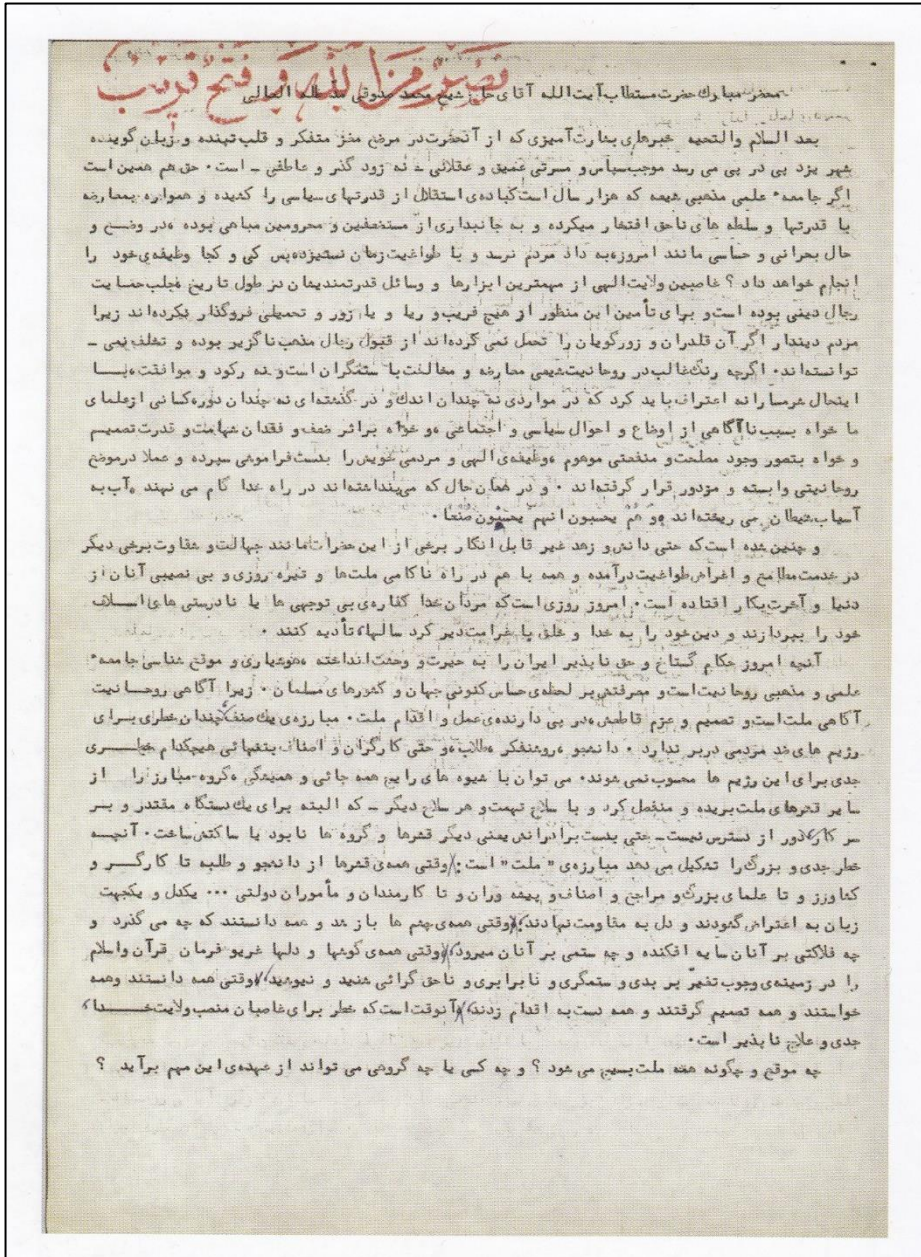 نصر من الله و فتح قریب
محضر مبارك حضرت مستطاب آیت الله آقای حاج شیخ محمد صدوقی مد ظله العالی
بعد السلام والتحیه خبرهای بشارت آمیزی که از آنحضرت در موضع مغز متفکر و قلب تپنده و زبان گوینده
شهر یزد پی در پی می رسد موجب سپاس و مسرتی عمیق و عقلانی ـ نه زود گذر و عاطفی ـ است ۰ حق هم همین است
اگر جامعه ٔ علمی مذهبی شیعه که هزار سال است کباده ی استقلال از قدرتهای سیاسی را کشیده و همواره بمعارضه
با قدرتها و سلطه های ناحق افتخار میکرده و به جانبداری از مستضعفین و محرومین مباهی بوده ،در وضع و
حال بحرانی و حساسی مانند امروزه به داد مردم نرسد و با طواغیت زمان نستیزد،پس کی و کجا وظیفه ی خود را
انجام خواهد داد ؟ غاصبین ولایت الهی از مهمترین ابزارها و وسائل قدرتمندیشان در طول تاریخ ،جلب حمایت
رجال دینی بوده است و برای تأمین این منظور از هیچ فریب و ریا و یا زور و تحمیلی فروگذار نکرده اند زیرا
مردم دیندار اگر آن قلدران و زورگویان را تحمل نمی کرده اند از قبول رجال مذهب ناگزیر بوده و تخلف نمی ـ
توانسته اند۰ اگرچه رنگ غالب در روحانیت شیعی معارضه و مخالفت با ستمگران است و نه رکود و موافقت ،بــا
اینحال شرمسارانه اعتراف باید کرد که در مواردی نه چندان اندك و در گذشته ای نه چندان دور،کسانی ازعلمای
ما خواه بسبب ناآگاهی از اوضاع و احوال سیاسی و اجتماعی ،و خواه براثر ضعف و فقدان شهامت و قدرت تصمیم
و خواه بتصور وجود مصلحت و منفعتی موهوم ،وظیفه ی الهی و مردمی خویش را بدست فراموشی سپرده و عملا درموضع
روحانیتی وابسته و مزدور قرار گرفته اند ۰ و در همان حال که می پنداشته اند در راه خدا گام می نهند ،آب به
آسیاب شیطان می ریخته اند ،و هُم یحسبون انهم یحسنون صُنعا ۰
و چنین شده است که حتی دانش و زهد غیر قابل انکار برخی از این حضرات مانند جهالت و شقاوت برخی دیگر
در خدمت مطامع و اغراض طواغیت درآمده و همه با هم در راه ناکامی ملت ها و تیره روزی و بی نصیبی آنان از
دنیا و آخرت بکار افتاده است ۰ امروز روزی است که مردان خدا کفاره ی بی توجهی ها یا نادرستی های اســلاف
خود را بپردازند و دین خود را به خدا و خلق با غرامت دیر کرد سالها، تأدیه کنند ۰
آنچه امروز حکام گستاخ و حق ناپذیر ایران را به حیرت و وحشت انداخته ،هوشیاری و موقع شناسی جامعه ٔ
علمی و مذهبی روحانیت است و معرفتش بر لحظه ی حساس کنونی جهان و کشورهای مسلمان ۰ زیرا آگاهی روحــانیت
آگاهی ملت است و تصمیم و عزم قاطعش،در پی دارنده ی عمل و اقدام ملت ۰ مبارزه ی یك صنف، چندان خطری بــرای
رژیم های ضد مردمی دربر ندارد ۰ دانشجو ،روشنفکر ،طلاب ،و حتی کارگران و اصناف بتنهائی هیچکدام خطــــری
جدی برای این رژیم ها محسوب نمی شوند۰ می توان با شیوه های رایج همه جائی و همیشگی ،گروه ـ مبارز را از
سایر قشرهای ملت بریده و منفعل کرد و با سلاح تهمت و هر سلاح دیگر ـ که البته برای یك دستگاه مقتدر و بــر
سر کار،دور از دسترس نیست ـ حتی بدست برادرانش یعنی دیگر قشرها و گروه ها نابود یا ساکتش ساخت ۰ آنچــه
خطر جدی و بزرگ را تشکیل می دهد مبارزه ی " ملت " است : وقتی همه ی قشرها از دانشجو و طلبه تا کارگــر و
کشاورز و تا علمای بزرگ و مراجع و اصناف و پیشه وران و تا کارمندان و مأموران دولتی ۰۰۰ یکدل و یکجهت
زبان به اعتراض گشودند و دل به مقاومت نهادند، وقتی همه ی چشم ها باز شد و همه دانستند که چه می گذرد و
چه فلاکتی بر آنان سایه افکنده و چه ستمی بر آنان میرود، وقتی همه ی گوشها و دلها غریو فرمان قرآن واسلام
را در زمینه ی وجوب تغیّر بر بدی و ستمگری و نابرابری و ناحق گرائی شنید و نیوشید، وقتی همه دانستند وهمه
خواستند و همه تصمیم گرفتند و همه دست به اقدام زدند، آنوقت است که خطر برای غاصبان منصب ولایت خـــــدا،
جدی و علاج ناپذیر است ۰
چه موقع و چگونه همه ملت بسیج می شود ؟ و چه کسی یا چه گروهی می تواند از عهده ی این مهم برآید ؟